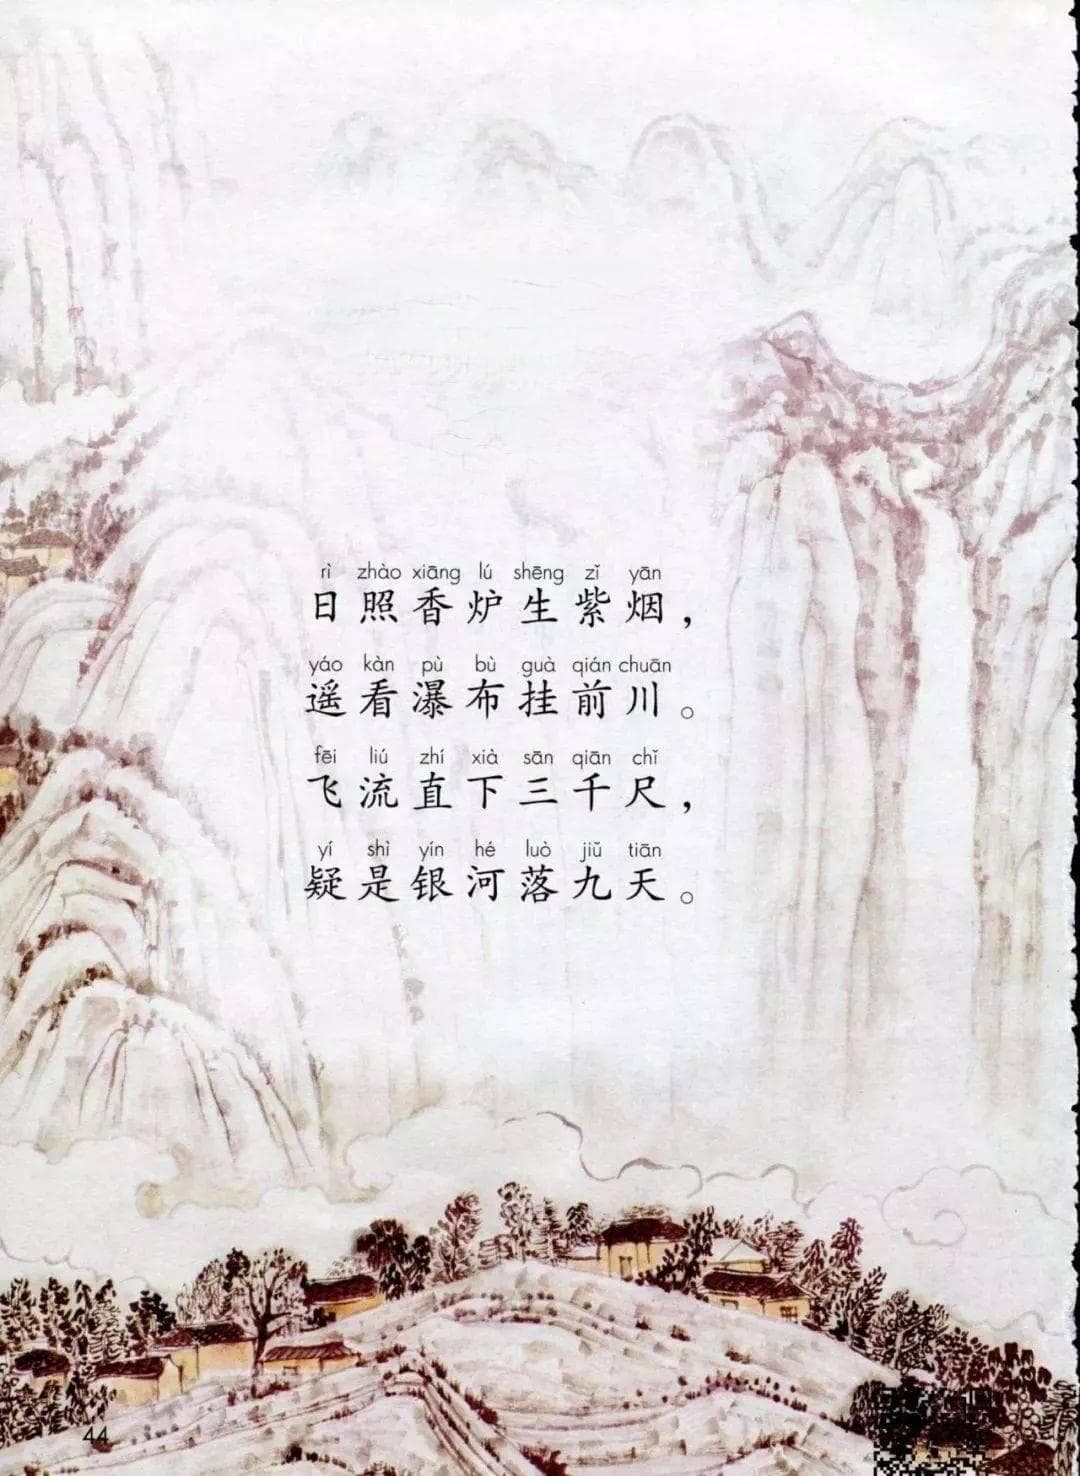 rì zhào xiāng lú shēng zǐ yān
日照香炉生紫烟，
yáo kàn pù bù guà qián chuān
遥看瀑布挂前川。
fēi liú zhí xià sān qiān chǐ
飞流直下三千尺，
yí shì yín hé luò jiǔ tiān
疑是银河落九天。
44